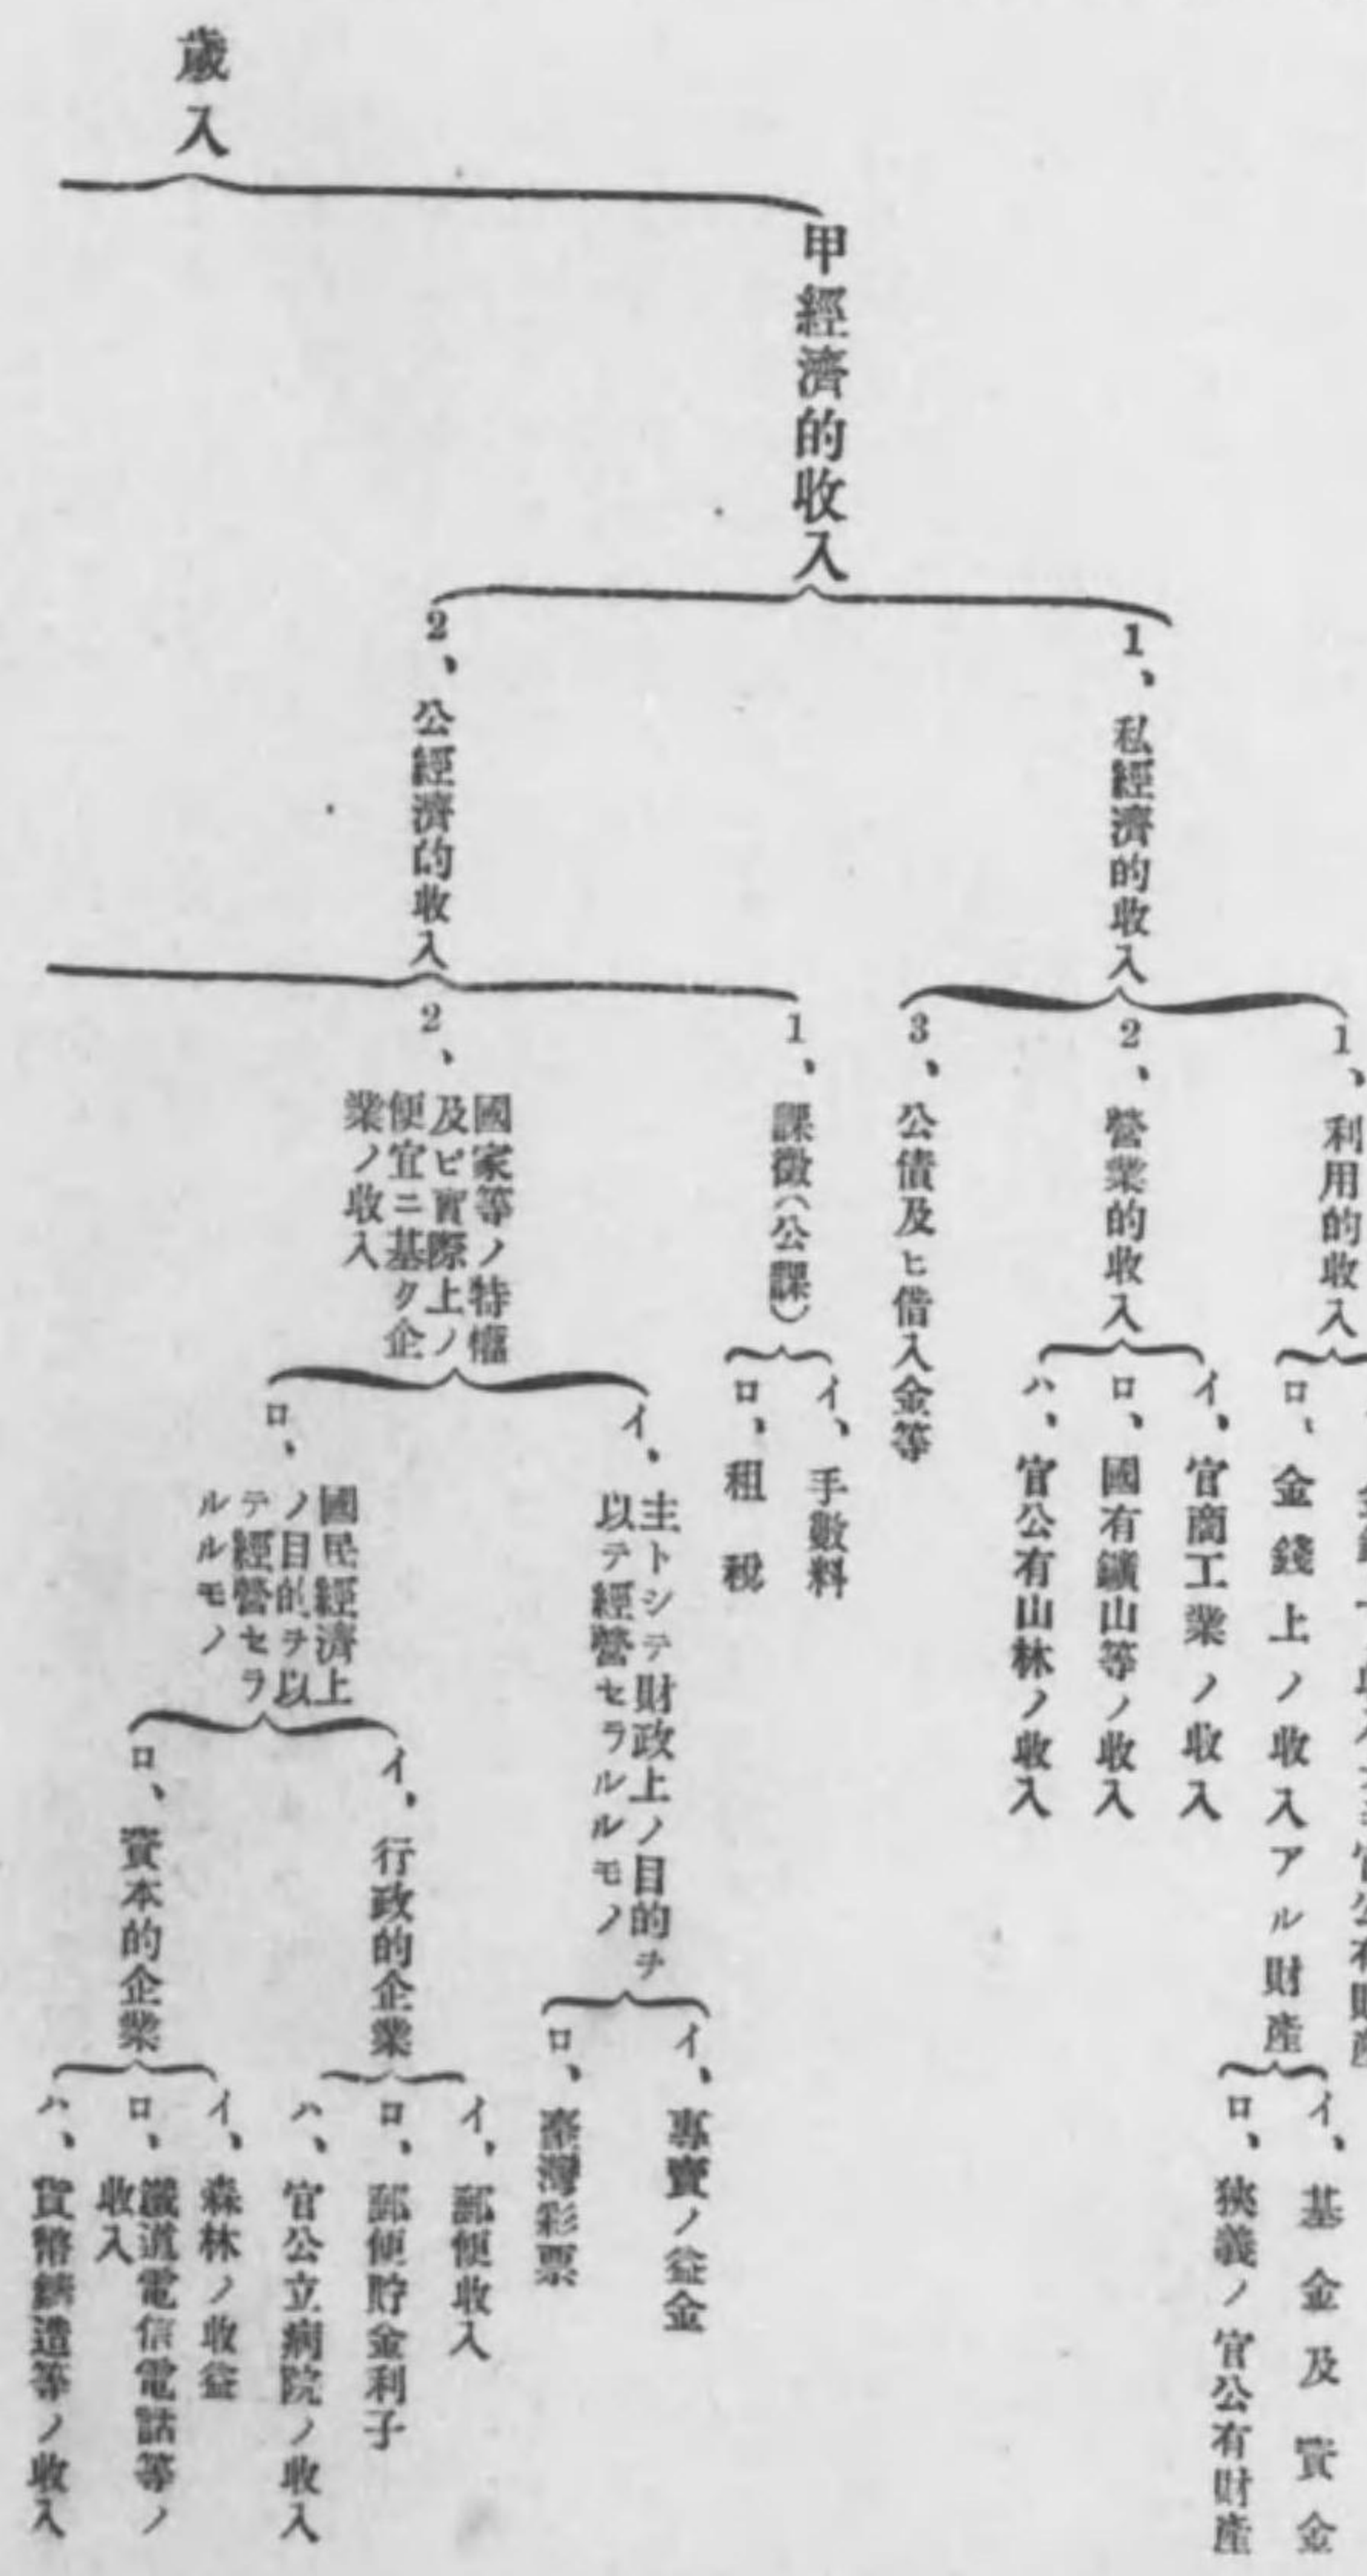 歲入
甲經濟的收入
1、私經濟的收入
1、利用的收入
ロ、金錢上ノ收入アル財產
イ、基金及資金
ロ、狹義ノ官公有財產
2、營業的收入
イ、官商工業ノ收入
ロ、國有鑛山等ノ收入
ハ、官公有山林ノ收入
3、公債及ヒ借入金等
2、公經濟的收入
1、課徵(公課)
イ、手數料
ロ、租稅
2、國家等ノ特權
及ビ實際上ノ
便宜ニ基ク企
業ノ收入
イ、主トシテ財政上ノ目的ヲ
以テ經營セラルルモノ
イ、專賣ノ益金
ロ、臺灣彩票
ロ、國民經濟上
ノ目的ヲ以
テ經營セラ
ルルモノ
イ、行政的企業
イ、郵便收入
ロ、郵便貯金利子
ハ、官公立病院ノ收入
ロ、資本的企業
イ、森林ノ收益
ロ、鐵道電信電話等ノ
收入
ハ、貨幣鑄造等ノ收入